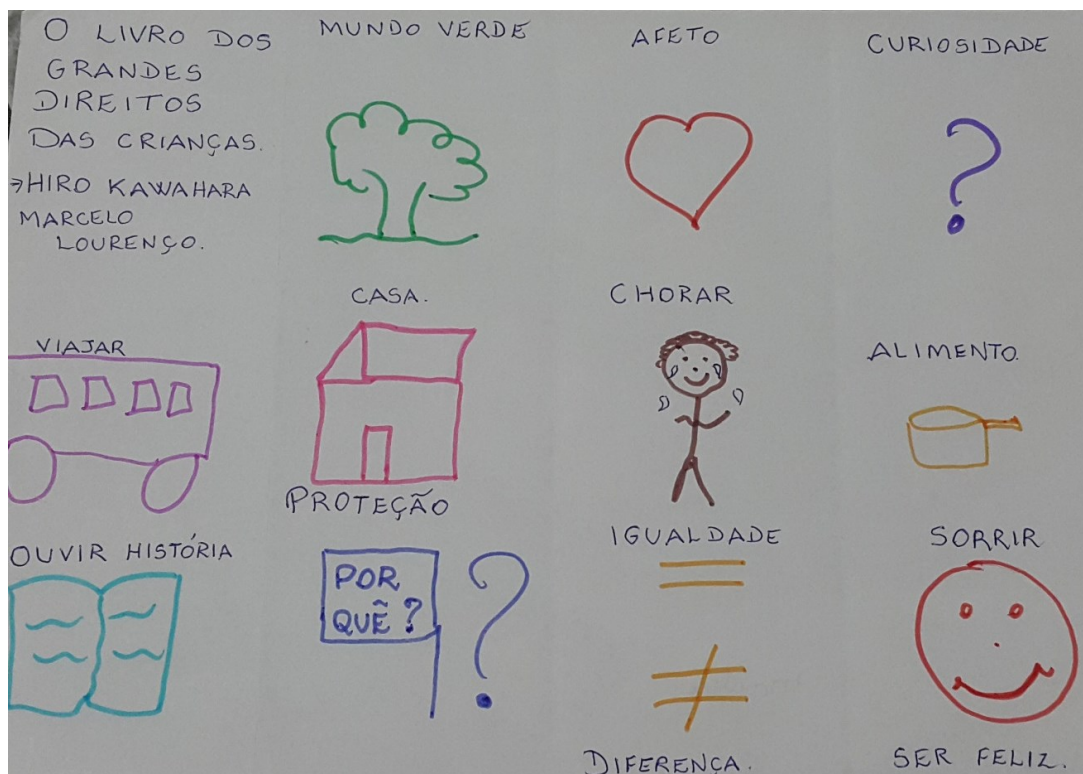 O LIVRO DOS
GRANDES
DIREITOS
DAS CRIANÇAS.
→HIRO KAWAHARA
MARCELO
LOURENÇO.
MUNDO VERDE
AFETO
CURIOSIDADE
?
VIAJAR
CASA.
PROTEÇÃO
CHORAR
ALIMENTO.
OUVIR HISTÓRIA
POR
QUÊ?
?
IGUALDADE
=
≠
DIFERENÇA.
SORRIR
SER FELIZ.